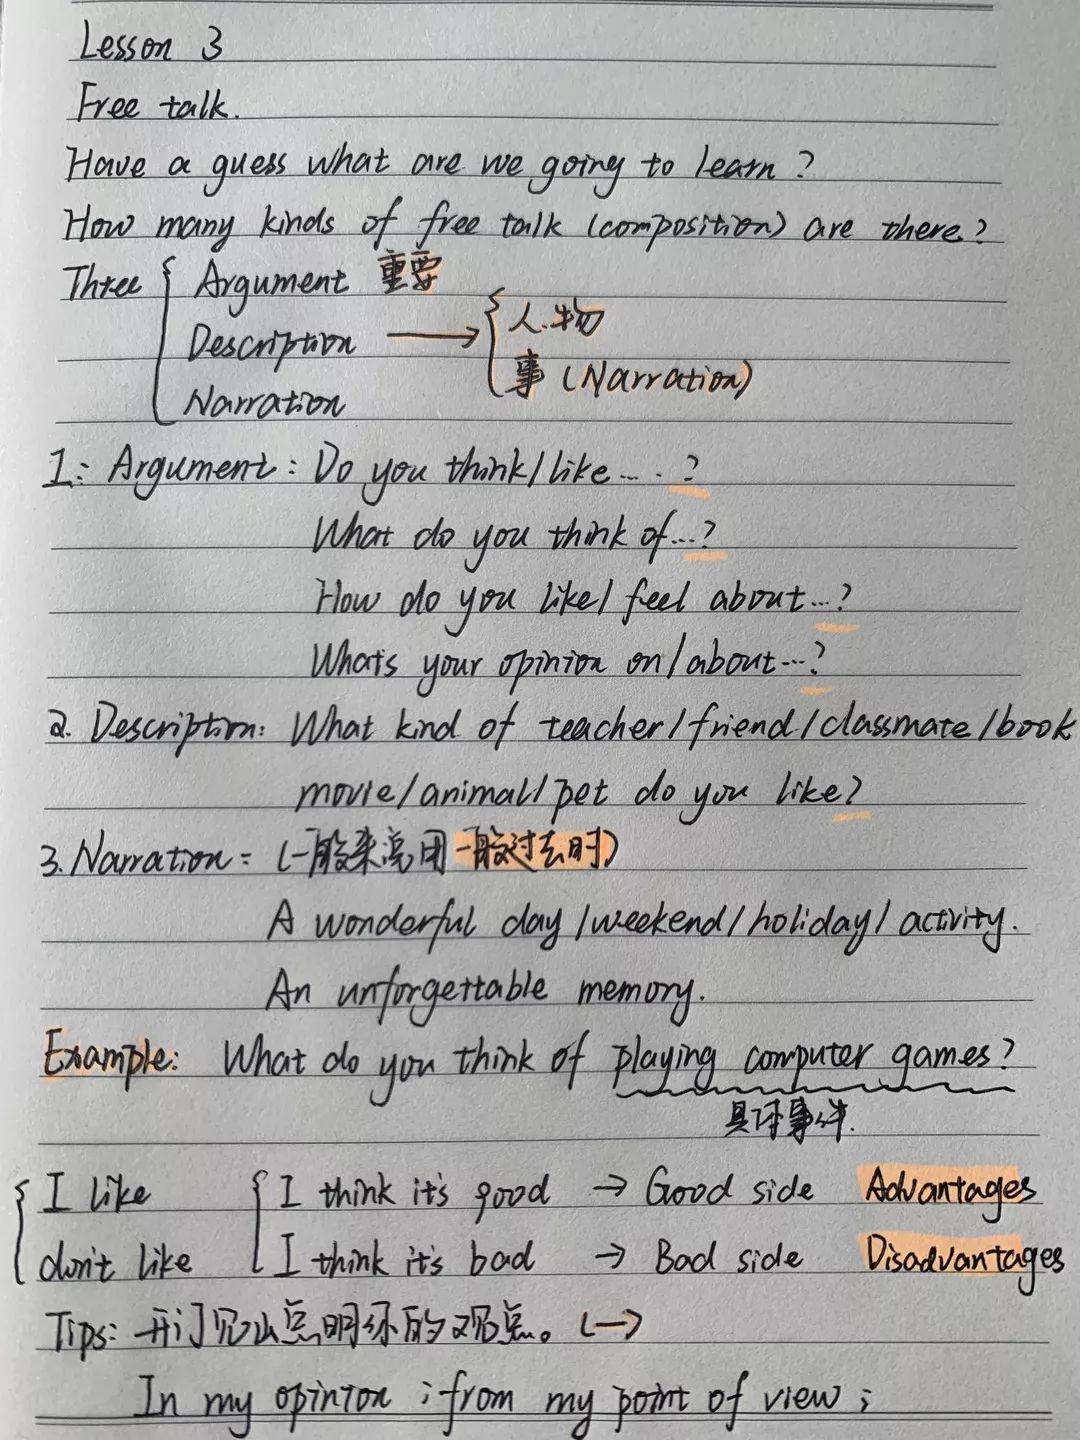 Lesson 3
Free talk.
Have a guess what are we going to learn?
How many kinds of free talk (composition) are there?
Three { Argument 重要
Description → { 人.物
事 (Narration)
Narration
1: Argument: Do you think/like.....?
What do you think of...?
How do you like/feel about...?
What's your opinion on/about...?
2. Description: What kind of teacher/friend/classmate/book
movie/animal/pet do you like?
3. Narration: (一般来说用一般过去时)
A wonderful day/weekend/holiday/activity.
An unforgettable memory.
Example: What do you think of playing computer games?
具体事件.
{ I like { I think it's good → Good side Advantages
don't like I think it's bad → Bad side Disadvantages
Tips: 开门见山点明你的观点。(一)
In my opinion ; from my point of view ;